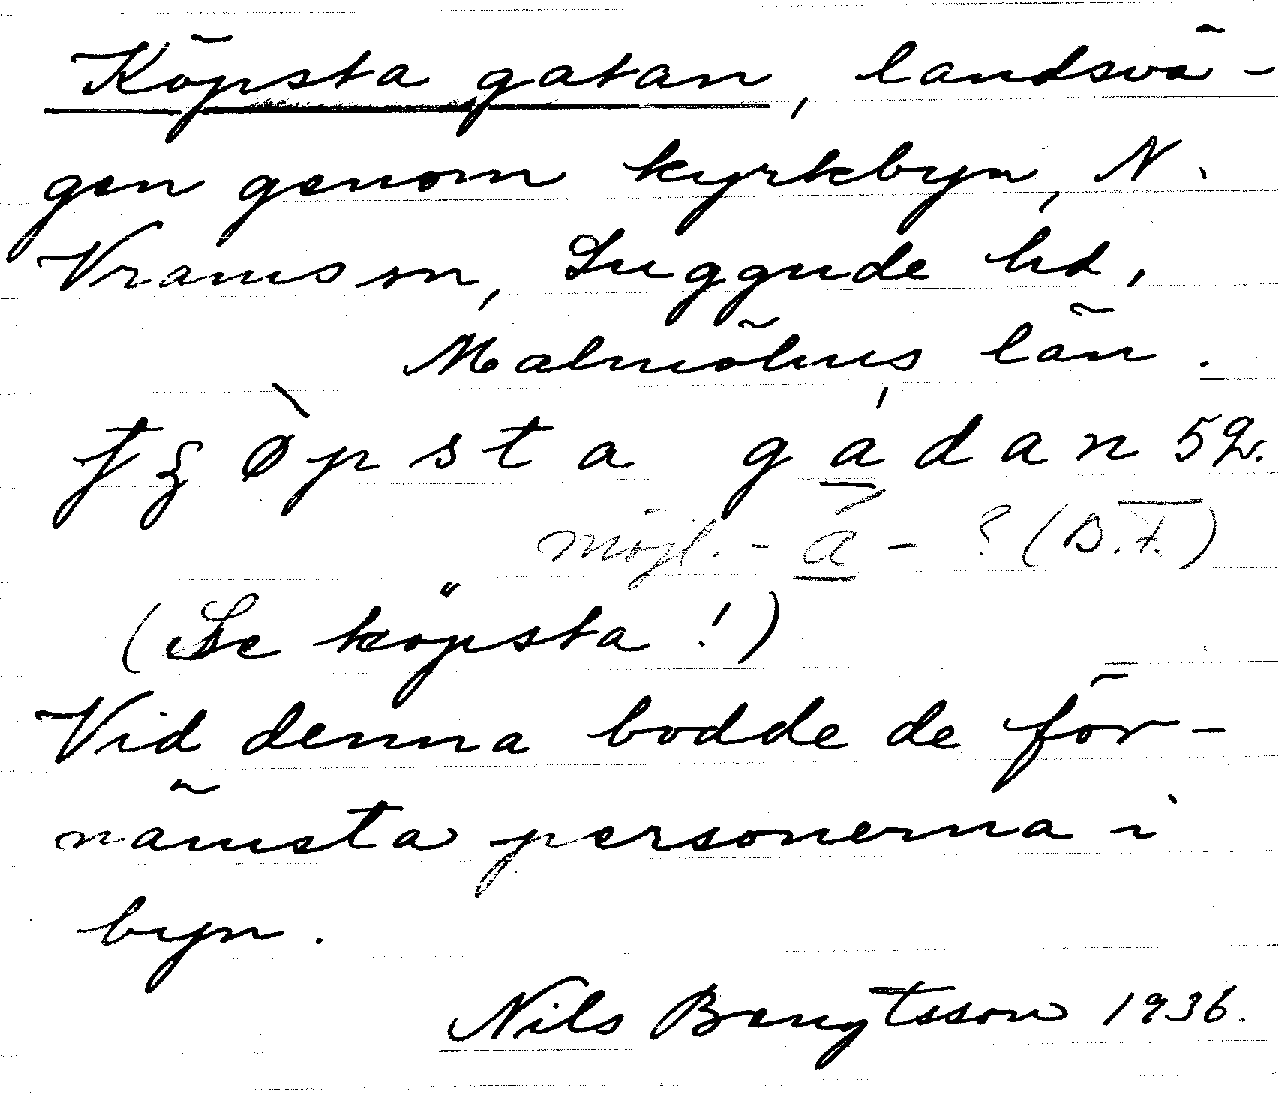 Köpsta gatan, landsvä-
gen genom kyrkbyn, N.
Vrams sn, Luggude hd,
Malmöhus län.
ƭʒøpsta gadan 52.
möjl. - a - ? (B.F.)
(Se köpsta!)
Vid denna bodde de för-
nämsta personerna i
byn.
Nils Bengtsson 1936.